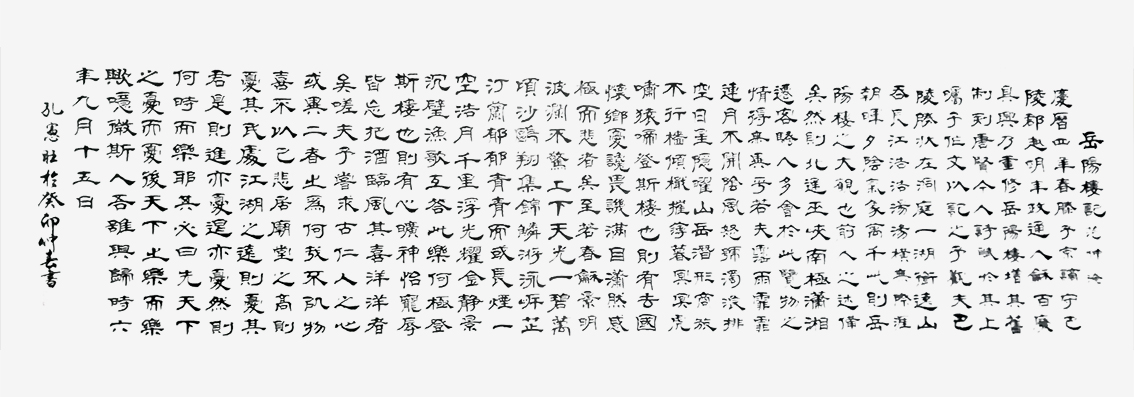 岳陽樓記 范仲淹
慶曆四年春滕子京謫守巴
陵郡越明年政通人龢百廢
具興乃重修岳陽樓增其舊
制刻唐賢今人詩賦於其上
囑予作文以記之予觀夫巴
陵勝狀在洞庭一湖銜遠山
吞長江浩浩湯湯橫無際涯
朝暉夕陰氣象萬千此則岳
陽樓之大觀也前人之述備
矣然則北通巫峽南極瀟湘
遷客騷人多會於此覽物之
情得無異乎若夫霪雨霏霏
連月不開陰風怒號濁浪排
空日星隱曜山岳潛形商旅
不行檣傾楫摧薄暮冥冥虎
嘯猿啼登斯樓也則有去國
懷鄉憂讒畏譏滿目蕭然感
極而悲者矣至若春龢景明
波瀾不驚上下天光一碧萬
頃沙鷗翔集錦鱗游泳岸芷
汀蘭郁郁青青而或長煙一
空浩月千里浮光耀金靜景
沉璧漁歌互答此樂何極登
斯樓也則有心曠神怡寵辱
皆忘把酒臨風其喜洋洋者
矣嗟夫予嘗求古仁人之心
或異二者之為何哉不以物
喜不以己悲居廟堂之高則
憂其民處江湖之遠則憂其
君是則進亦憂退亦憂然則
何時而樂耶其必曰先天下
之憂而憂後天下之樂而樂
歟噫微斯人吾誰與歸時六
年九月十五日
孔憲壯於癸卯仲春書